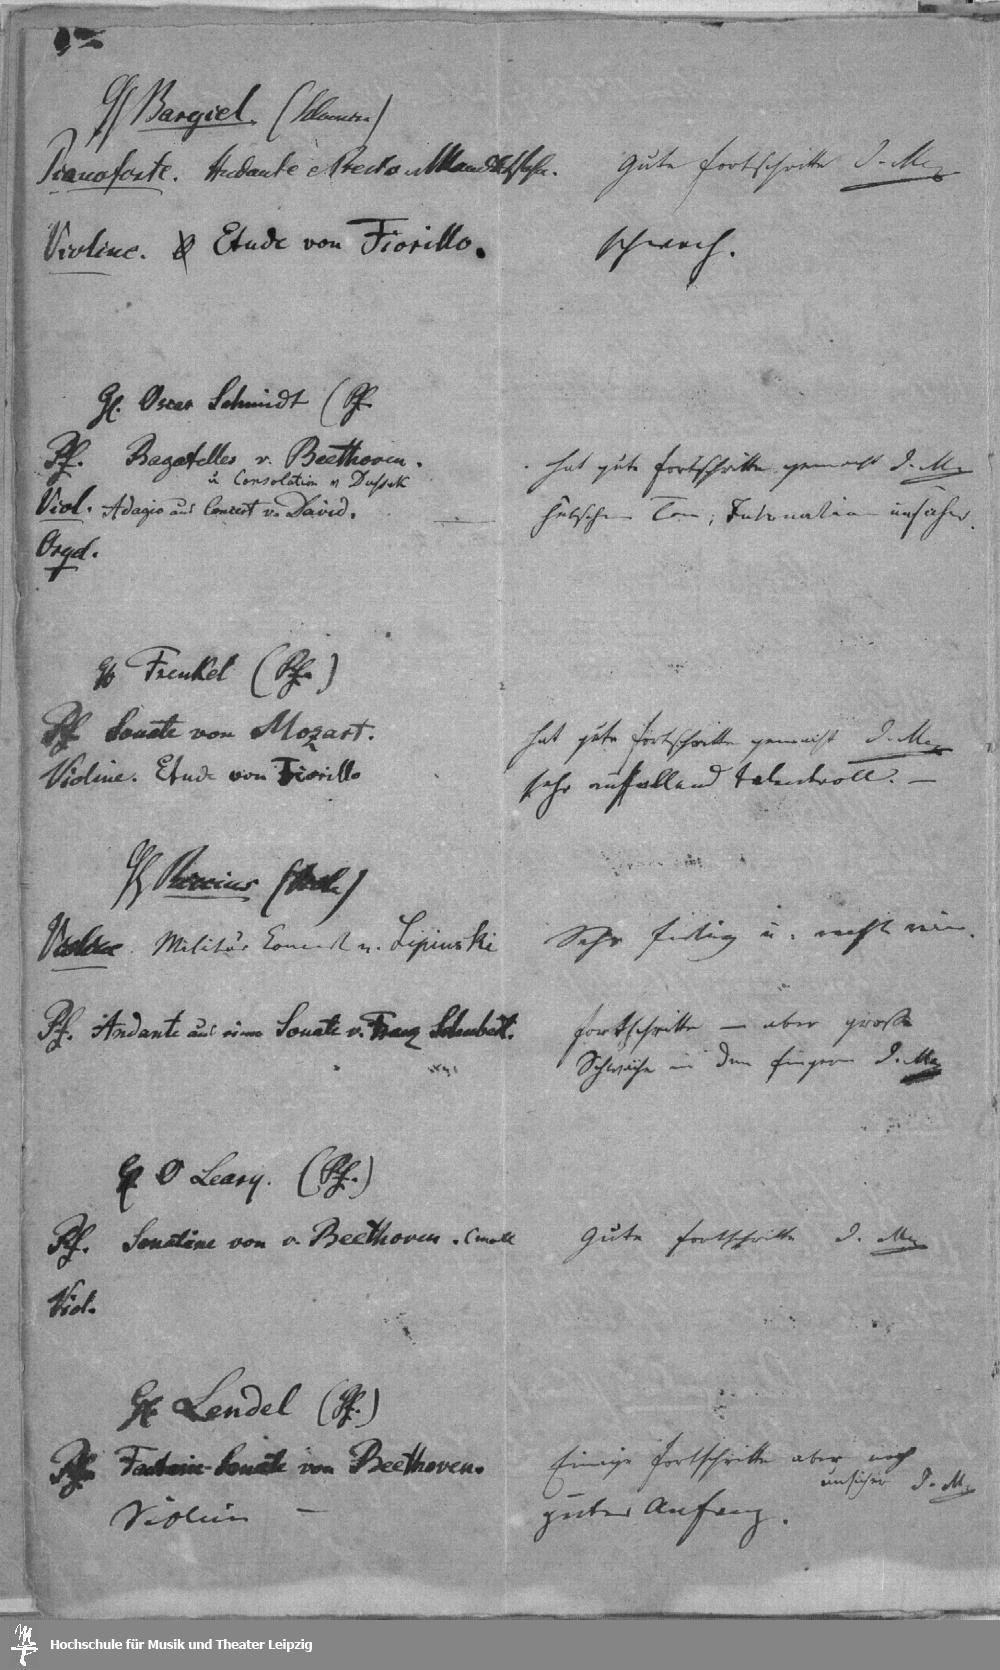 H Bargiel.
Pianoforte. Andante e Presto v. Mendelssohn. gute Fortschritte J. M.
Violine. Etude von Fiorillo. schwach.
H. Oscar Schmidt (Pf.
Pf. Bagatelles v. Beethoven. hat gute Fortschritte gemacht J. M.
u Consolation v Dussek
Viol. Adagio aus Concert v. David. hübscher Ton; Intonation unsicher.
Orgel.
H Frenkel (Pf.)
Pf Sonate von Mozart. hat gute Fortschritte gemacht J. M.
Violine. Etude von Fiorillo sehr auffallend talentvoll. —
H
Violine. Militär Concert v. Lipinski Sehr fertig u. recht rein.
Pf. Andante aus einer Sonate v. Franz Schubert. Fortschritte — aber große
Schwäche in den Fingern J. M.
H O Leary. (Pf.)
Pf. Sonatine von v. Beethoven. Cmoll gute Fortschritte J. M.
Viol.
H. Lendel (Pf.)
Pf. Sonate von Beethoven. Einige Fortschritte aber noch
unsicher J. M.
Violin — guter Anfang.
Hochschule für Musik und Theater Leipzig